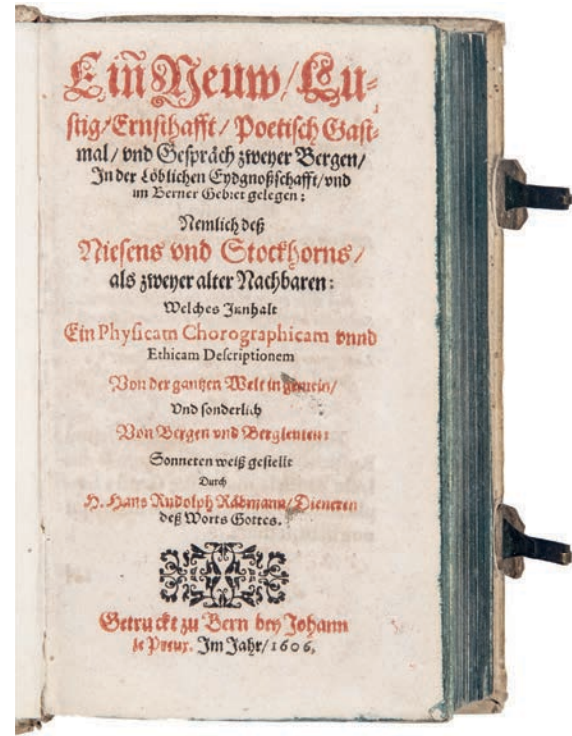 Ein Neuw/ Lu-
stig/ Ernsthafft/ Poetisch Gast-
mal/ vnd Gespräch zweyer Bergen/
In der Löblichen Eydgnoßschafft/ vnd
im Berner Gebiet gelegen:
Nemlich deß
Niesens vnd Stockhorns/
als zweyer alter Nachbaren:
Welches Innhalt
Ein Physicam Chorographicam vnnd
Ethicam Descriptionem
Von der gantzen Welt in gemein/
Vnd sonderlich
Von Bergen vnd Bergleuten:
Sonneten weiß gestellt
Durch
H. Hans Rudolph Räbmann/ Dieneren
deß Worts Gottes.
Getruckt zu Bern bey Johann
le Preux. Im Jahr/ 1606.